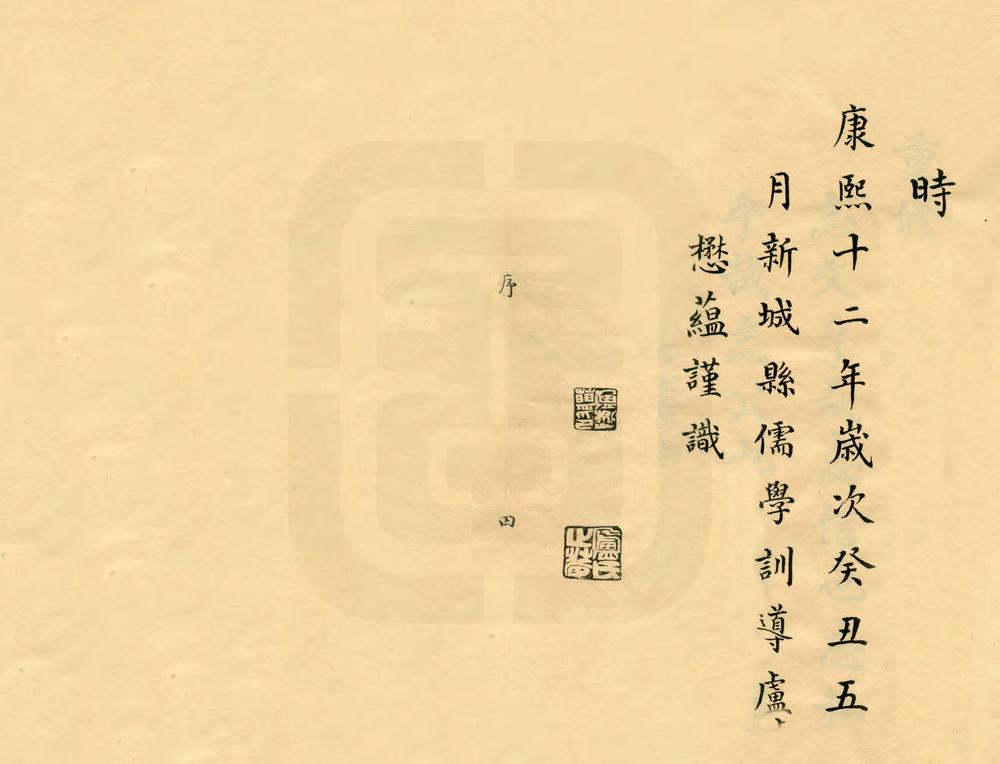 時
康熙十二年歲次癸丑五
月新城縣儒學訓導盧
懋蘊謹識
序
四